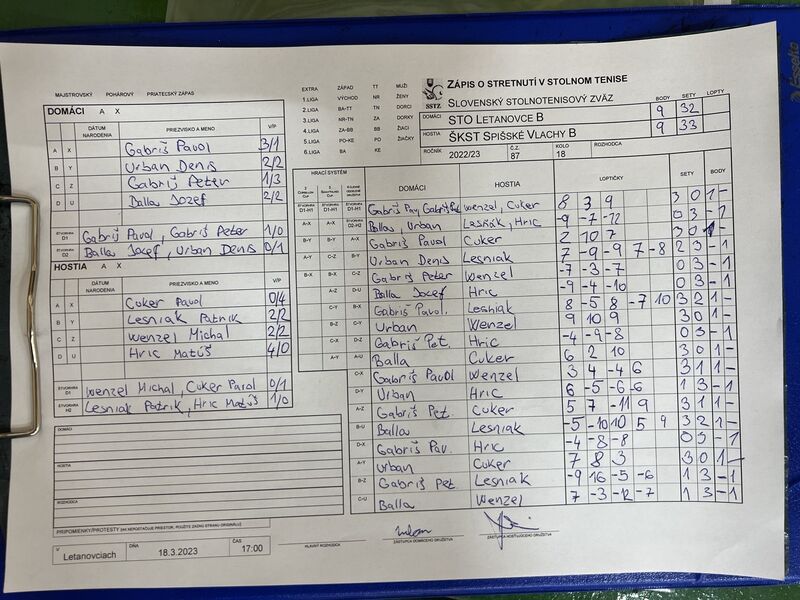 MAJSTROVSKÝ POHÁROVÝ PRIATEĽSKÝ ZÁPAS
DOMÁCI A X
DÁTUM NARODENIA PRIEZVISKO A MENO V/P
A X Gabriš Pavol 3/1
B Y Urban Denis 2/2
C Z Gabriš Peter 1/3
D U Balla Jozef 2/2
ŠTVORHRA D1 Gabriš Pavol, Gabriš Peter 1/0
ŠTVORHRA D2 Balla Jozef, Urban Denis 0/1
HOSTIA A X
DÁTUM NARODENIA PRIEZVISKO A MENO V/P
A X Cuker Pavol 0/4
B Y Lesniak Patrik 2/2
C Z Wenzel Michal 2/2
D U Hric Matúš 4/0
ŠTVORHRA D1 Wenzel Michal, Cuker Pavol 0/1
ŠTVORHRA H2 Lesniak Patrik, Hric Matúš 1/0
DOMÁCI
HOSTIA
ROZHODCA
PRIPOMIENKY/PROTESTY (AK NEPOSTAČUJE PRIESTOR, POUŽITE ZADNÚ STRANU ORIGINÁLU)
V Letanovciach DŇA 18.3.2023 ČAS 17:00
EXTRA ZÁPAD TT MUŽI
1.LIGA VÝCHOD NR ŽENY
2.LIGA BA-TT TN DORCI
3.LIGA NR-TN ZA DORKY
4.LIGA ZA-BB BB ŽIACI
5.LIGA PO-KE PO ŽIAČKY
6.LIGA BA KE
SSTZ
ZÁPIS O STRETNUTÍ V STOLNOM TENISE
SLOVENSKÝ STOLNOTENISOVÝ ZVÄZ BODY SETY LOPTY
DOMÁCI STO LETANOVCE B 9 32
HOSTIA ŠKST SPIŠSKÉ VLACHY B 9 33
ROČNÍK 2022/23 Č.Z. 87 KOLO 18 ROZHODCA
HRACÍ SYSTÉM DOMÁCI HOSTIA LOPTIČKY SETY BODY
ŠTVORHRA D1-H1 ŠTVORHRA D1-H1 ŠTVORHRA D1-H1 Gabriš Pav, Gabriš Pet Wenzel, Cuker 8 3 9 3 0 1 -
A-X A-X ŠTVORHRA D2-H2 Balla, Urban Lesňak, Hric -9 -7 -12 0 3 - 1
B-Y B-Y A-X Gabriš Pavol Cuker 2 10 7 3 0 1 -
A-Y C-Z B-Y Urban Denis Lesniak 7 -9 -9 7 -8 2 3 - 1
B-X B-X C-Z Gabriš Peter Wenzel -7 -3 -7 0 3 - 1
A-Z D-U Balla Jozef Hric -9 -4 -10 0 3 - 1
C-Y B-X Gabriš Pavol. Lesniak 8 -5 8 -7 10 3 2 1 -
B-Z C-Y Urban Wenzel 9 10 9 3 0 1 -
C-X D-Z Gabriš Pet. Hric -4 -9 -8 0 3 - 1
A-Y A-U Balla Cuker 6 2 10 3 0 1 -
C-X Gabriš Pavol Wenzel 3 4 -4 6 3 1 1 -
D-Y Urban Hric 6 -5 -6 -6 1 3 - 1
A-Z Gabriš Pet. Cuker 5 7 -11 9 3 1 1 -
B-U Balla Lesniak -5 -10 10 5 9 3 2 1 -
D-X Gabriš Pav. Hric -4 -8 -8 0 3 - 1
A-Y Urban Cuker 7 8 3 3 0 1 -
B-Z Gabriš Pet Lesniak -9 16 -5 -6 1 3 - 1
C-U Balla Wenzel 7 -3 -12 -7 1 3 - 1
HLAVNÝ ROZHODCA ZÁSTUPCA DOMÁCEHO DRUŽSTVA ZÁSTUPCA HOSŤUJÚCEHO DRUŽSTVA
Esselte